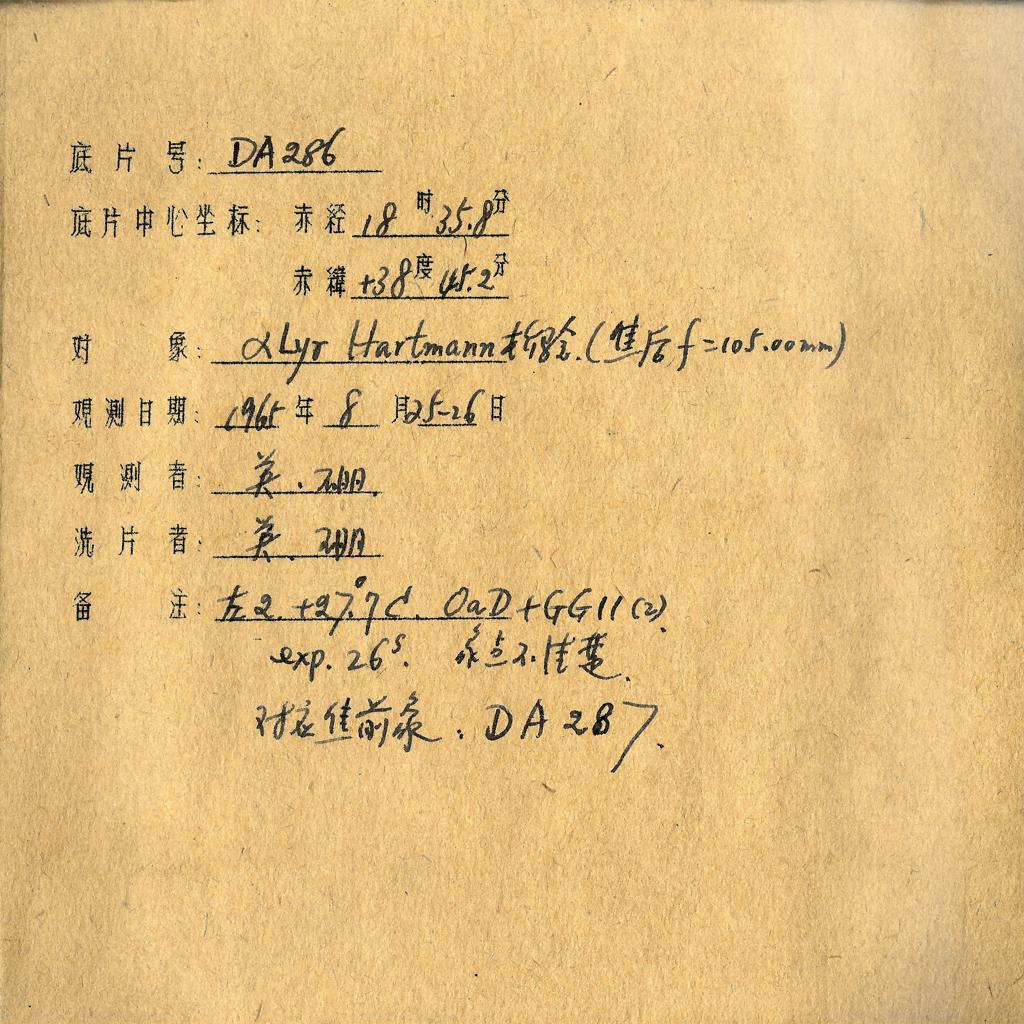 底片号: DA286
底片中心坐标: 赤经 18时 35.8分
赤纬 +38度 45.2分
对象: αLyr Hartmann 检验.(焦后 f=105.00mm)
观测日期: 1965年 8月25-26日
观测者: 英.
洗片者: 英.
备注: 左2. +27°.7C. OaD+GG11(2).
exp. 26ˢ. 象点不清楚.
对应焦前象: DA287.